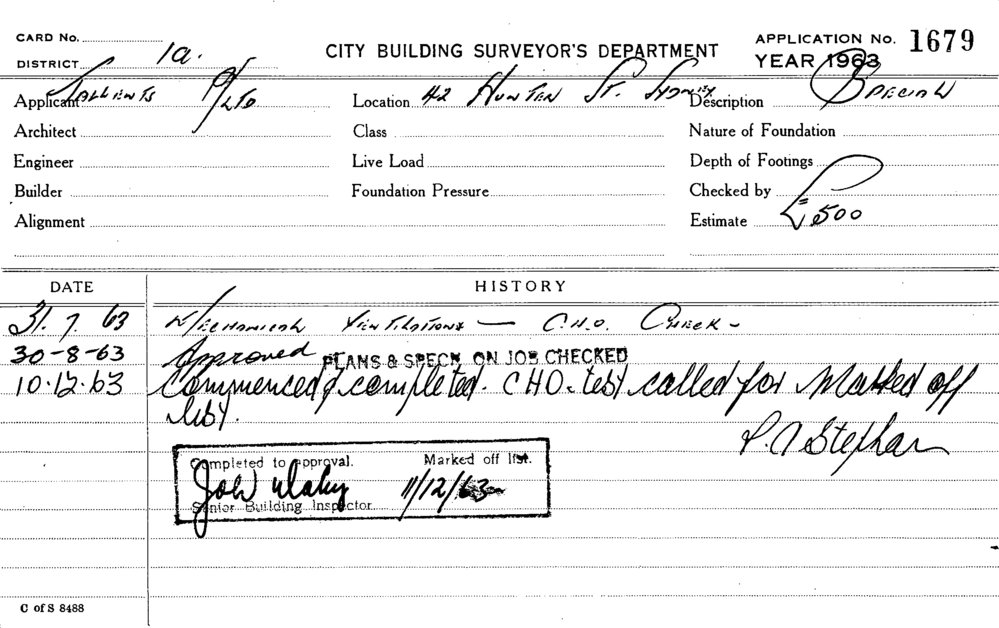 CARD No.
DISTRICT 1a.
CITY BUILDING SURVEYOR'S DEPARTMENT
APPLICATION No. 1679
YEAR 1963
Applicant P/LTD
Location 42 HUNTER ST. SYDNEY
Description SPECIAL
Architect
Class
Nature of Foundation
Engineer
Live Load
Depth of Footings
Builder
Foundation Pressure
Checked by
Alignment
Estimate £500
DATE
HISTORY
31.7.63 MECHANICAL VENTILATIONS — C.H.O. CHECK -
30-8-63 Approved PLANS & SPECN ON JOB CHECKED
10.12.63 Commenced & completed. CHO. test called for Marked off
list.
Completed to approval. Marked off list.
11/12/63
Senior Building Inspector
C of S 8488